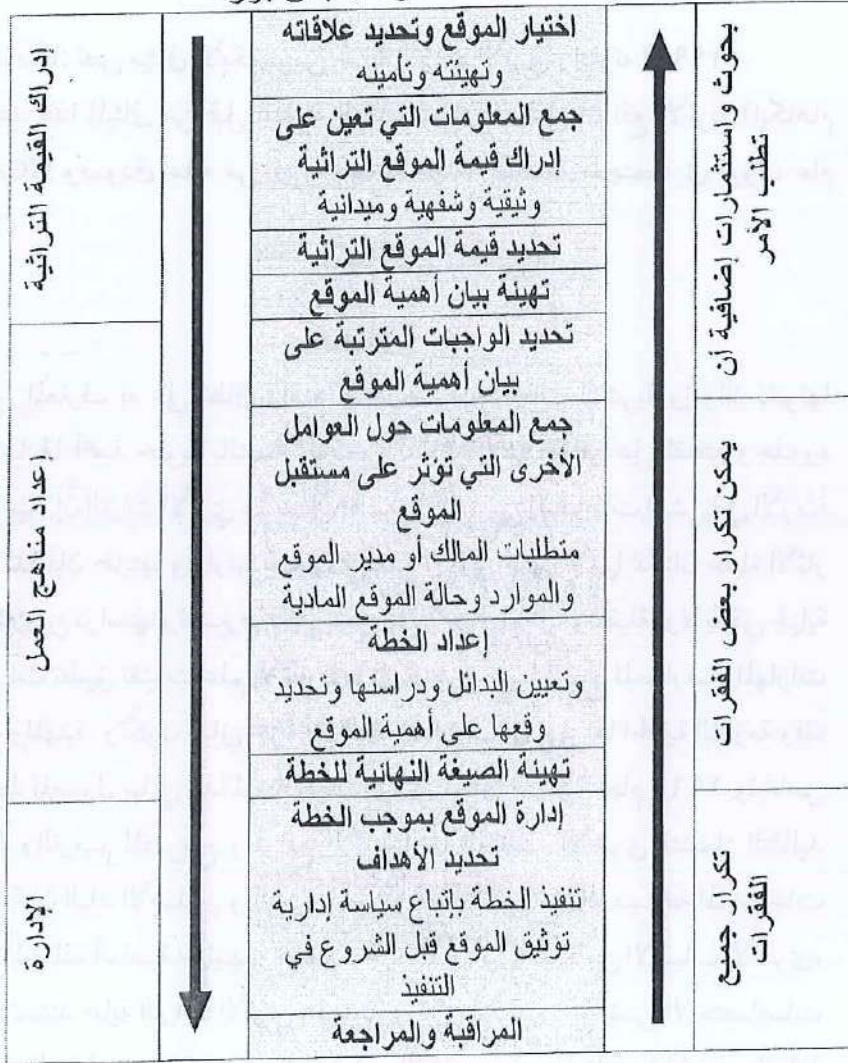 بحوث و استثمارات إضافية أن
تطلب الأمر
يمكن تكرار بعض الفقرات
تكرار جميع
الفقرات
اختيار الموقع وتحديد علاقاته
وتهيئته وتأمينه
جمع المعلومات التي تعين على
إدراك قيمة الموقع التراثية
وثيقية وشفهية وميدانية
تحديد قيمة الموقع التراثية
تهيئة بيان أهمية الموقع
تحديد الواجبات المترتبة على
بيان أهمية الموقع
جمع المعلومات حول العوامل
الأخرى التي تؤثر على مستقبل
الموقع
متطلبات المالك أو مدير الموقع
والموارد وحالة الموقع المادية
إعداد الخطة
وتعيين البدائل ودراستها وتحديد
وقعها على أهمية الموقع
تهيئة الصيغة النهائية للخطة
إدارة الموقع بموجب الخطة
تحديد الأهداف
تنفيذ الخطة باتباع سياسة إدارية
توثيق الموقع قبل الشروع في
التنفيذ
المراقبة والمراجعة
إدراك القيمة التراثية
إعداد مناهج العمل
الإدارة